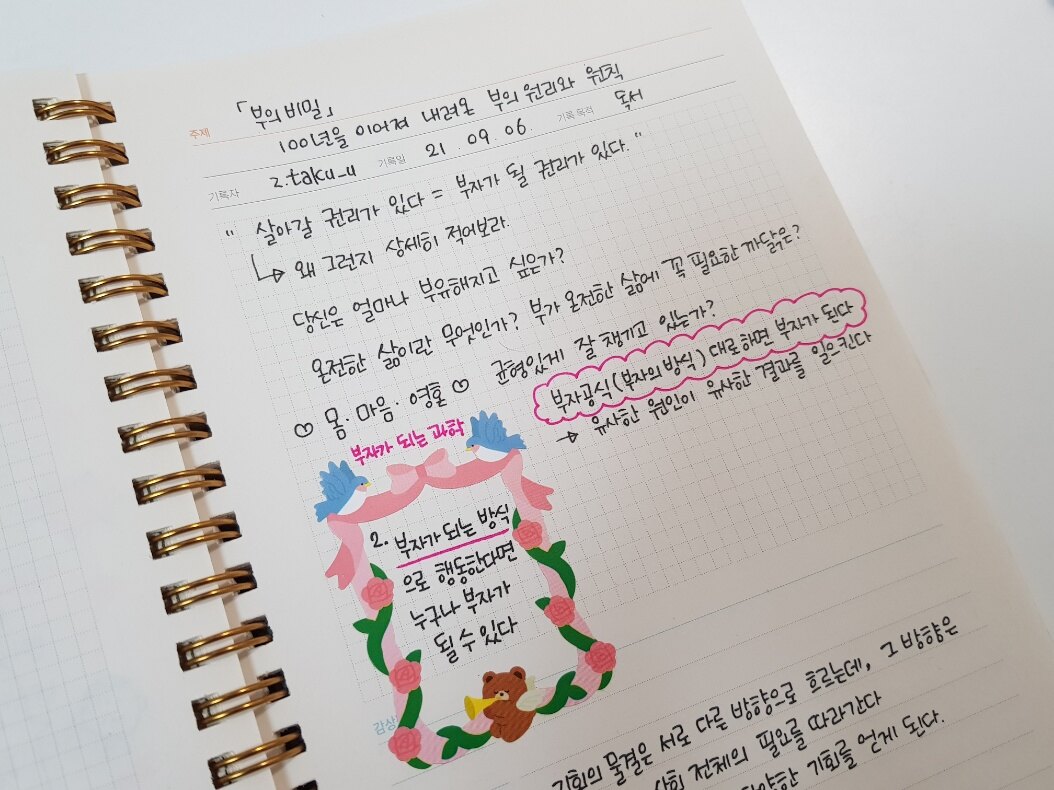 주제 「부의 비밀」
100년을 이어져 내려온 부의 원리와 원칙
기록자 z.taku_u 기록일 21. 09. 06. 기록 목적 독서
" 살아갈 권리가 있다 = 부자가 될 권리가 있다."
↳ 왜 그런지 상세히 적어보라.
당신은 얼마나 부유해지고 싶은가?
온전한 삶이란 무엇인가? 부가 온전한 삶에 꼭 필요한 까닭은?
♡ 몸·마음·영혼 ♡ 균형있게 잘 챙기고 있는가?
부자공식(부자의 방식)대로하면 부자가 된다
→ 유사한 원인이 유사한 결과를 일으킨다
부자가 되는 과학
2. 부자가 되는 방식
으로 행동한다면
누구나 부자가
될 수 있다
감상
기회의 물결은 서로 다른 방향으로 흐르는데, 그 방향은
사회 전체의 필요를 따라간다
기회를 얻게 된다.